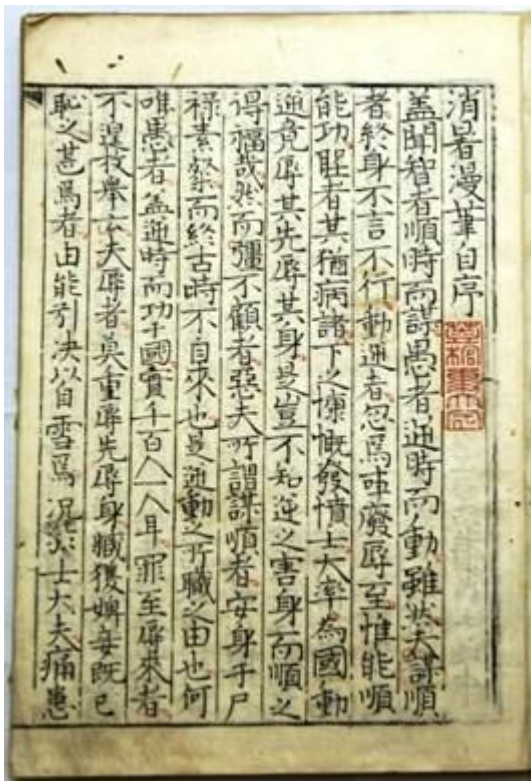 消暑漫筆自序
盖聞智者順時而謀愚者逆時而動雖然夫謀順
者終身不言不行動逆者忽焉廢辱至惟能順
能功者其猶病諸下之慷慨發憤士大率為國動
逆竟辱其先辱其身是豈不知逆之害身而順之
得福哉然而彊不顧者惡夫所謂謀順者安身于尸
禄素餐而終古時不自來也是逆動之所職之由也何
唯愚者盖逆時而功于國實千百人一人耳罪至辱來者
不遑枚舉云夫辱者莫重辱先辱身臧獲婢妾既已
恥之甚焉者由能引决以自雪焉况於士大夫痛患